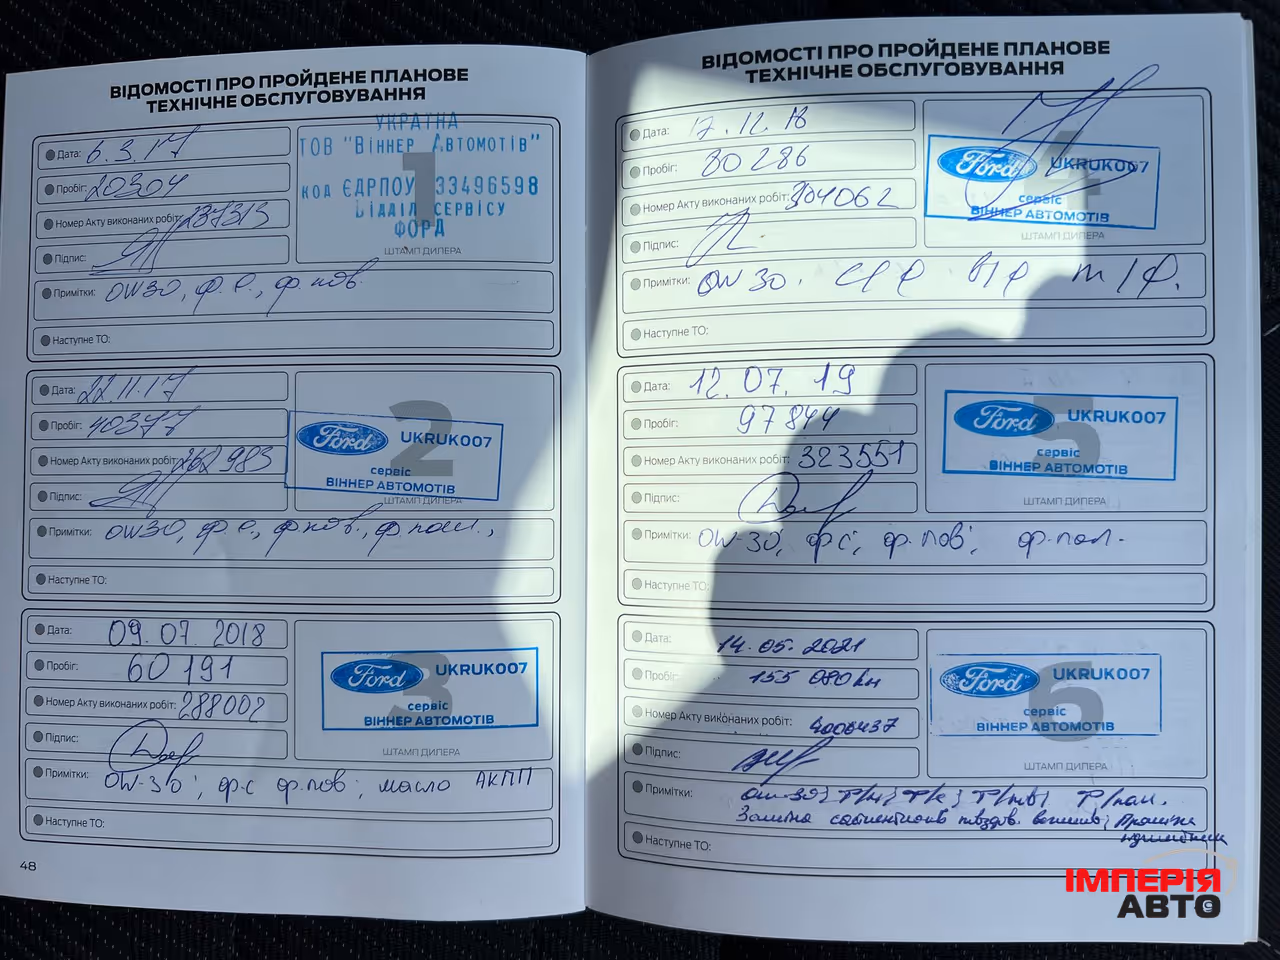 ВІДОМОСТІ ПРО ПРОЙДЕНЕ ПЛАНОВЕ
ТЕХНІЧНЕ ОБСЛУГОВУВАННЯ
Дата: 6.3.17
Пробіг: 20304
Номер Акту виконаних робіт: 237313
Підпис:
УКРАЇНА
ТОВ "Віннер Автомотів"
код ЄДРПОУ 33496598
Відділ сервісу
ФОРД
1
ШТАМП ДИЛЕРА
Примітки: 0W30, ф.с., ф.пов.
Наступне ТО:
Дата: 22.11.17
Пробіг: 40377
Номер Акту виконаних робіт: 262983
Підпис:
2
Ford UKRUK007
сервіс
ВІННЕР АВТОМОТІВ
ШТАМП ДИЛЕРА
Примітки: 0W30, ф.с., ф.пов., ф.пал.,
Наступне ТО:
Дата: 09.07.2018
Пробіг: 60191
Номер Акту виконаних робіт: 288002
Підпис:
3
Ford UKRUK007
сервіс
ВІННЕР АВТОМОТІВ
ШТАМП ДИЛЕРА
Примітки: 0W-30; ф.с ф.пов; масло АКПП
Наступне ТО:
48
ВІДОМОСТІ ПРО ПРОЙДЕНЕ ПЛАНОВЕ
ТЕХНІЧНЕ ОБСЛУГОВУВАННЯ
Дата: 17.12.18
Пробіг: 80286
Номер Акту виконаних робіт: 304062
Підпис:
4
Ford UKRUK007
сервіс
ВІННЕР АВТОМОТІВ
ШТАМП ДИЛЕРА
Примітки: 0W30.
Наступне ТО:
Дата: 12.07.19
Пробіг: 97844
Номер Акту виконаних робіт: 323551
Підпис:
5
Ford UKRUK007
сервіс
ВІННЕР АВТОМОТІВ
ШТАМП ДИЛЕРА
Примітки: 0W-30; ф.с; ф.пов; ф.пал.
Наступне ТО:
Дата: 14.05.2021
Пробіг: 155 080 км
Номер Акту виконаних робіт: 4006437
Підпис:
6
Ford UKRUK007
сервіс
ВІННЕР АВТОМОТІВ
ШТАМП ДИЛЕРА
Примітки:
Заміна
Наступне ТО:
ІМПЕРІЯ
АВТО